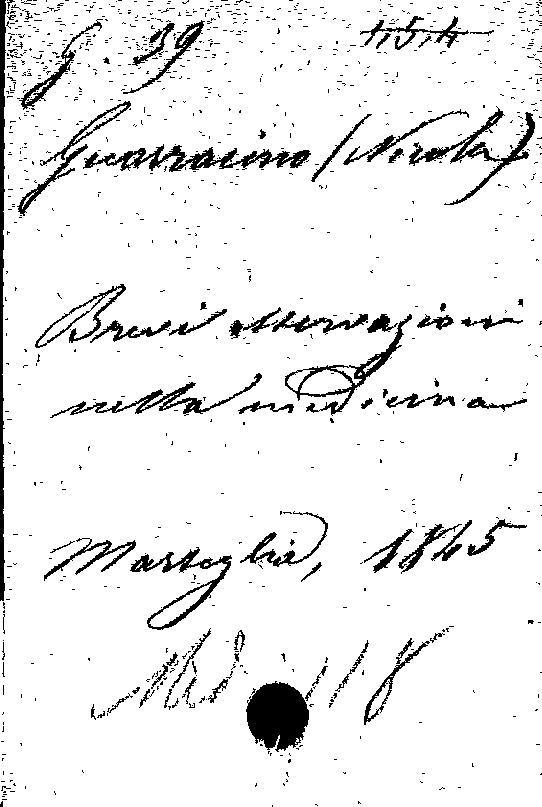 G. 39 4,5,4
Guarracino (Nicola)
Brevi osservazioni
nella medicina
Marseglia, 1845
Med 118